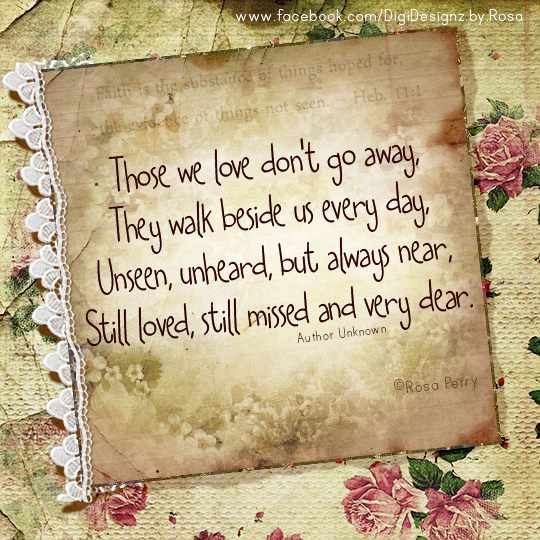 www.facebook.com/DigiDesignz.by.Rosa
Faith is the substance of things hoped for,
the evidence of things not seen. — Heb. 11:1
Those we love don't go away,
They walk beside us every day,
Unseen, unheard, but always near,
Still loved, still missed and very dear.
Author Unknown
©Rosa Perry